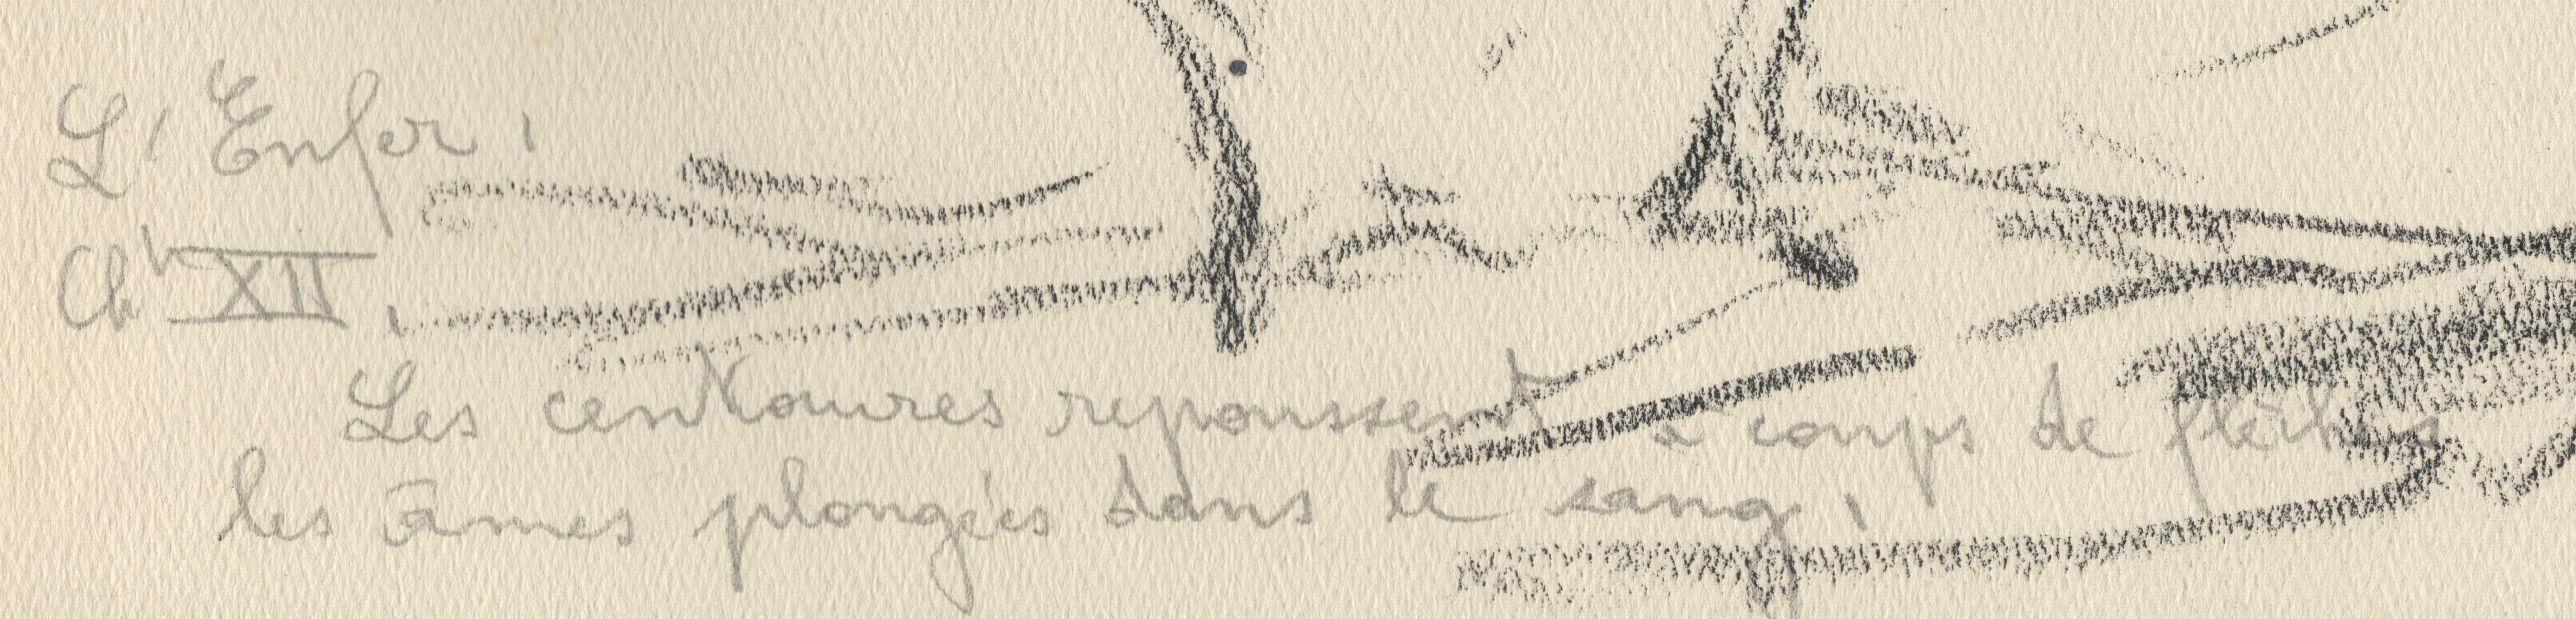 L'Enfer,
Ch XII,
Les centaures repoussent à coups de flèches
les âmes plongées dans le sang,